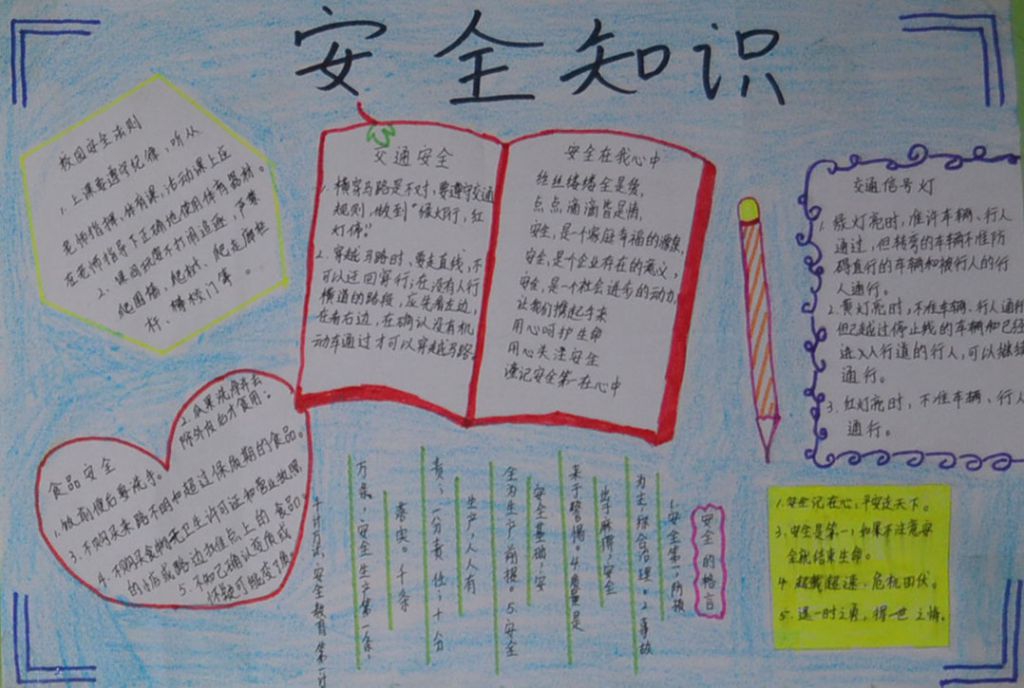 安全知识
校园安全法则
1.上课要遵守纪律,听从
老师指挥,体育课,活动课上应
在老师指导下正确地使用体育器材。
2.课间玩耍不打闹追逐,严禁
爬围墙,爬树、爬走廊栏
杆、横校门等。
交通安全
1.横穿马路是不对,要遵守交通
规则,做到“绿灯行,红
灯停”
2.穿越马路时,要走直线,不
可以迂回穿行;在没有人行
横道的路段,应先看左边,
在看右边,在确认没有机
动车通过才可以穿越马路。
安全在我心中
丝丝缕缕全是爱,
点点滴滴皆是情,
安全,是一个家庭幸福的源泉,
安全,是个企业存在的意义,
安全,是一个社会进步的动力,
让我们携起手来
用心呵护生命
用心关注安全
谨记安全第一在心中
交通信号灯
1.绿灯亮时,准许车辆、行人
通过,但转弯的车辆不准防
碍直行的车辆和被行人的行
人通行。
2.黄灯亮时,不准车辆、行人通行
但已越过停止线的车辆和已经
进入人行道的行人,可以继续
通行。
3.红灯亮时,不准车辆、行人
通行。
食品安全
1.饭前便后要洗手。
2.瓜果洗净并去
除外皮后才食用;
3.不购买来路不明和超过保质期的食品。
4.不购买食物无卫生许可证和营业执照
的小店或路边摊点上的食品。
5.不知己确认变质或
怀疑可能变了质
安全的格言
1.安全第一,预防
为主,综合治理。2.事故
出于麻痹,安全
来于警惕。4.质量是
安全基础,安
全为生产前提。5.安全
生产,人人有
责;一分责任,十分
落实。千条
万条,安全生产第一条;
千计万计,安全教育第一计
1.安全记在心,平安走天下。
3.安全是第一,如果不注意安
全就结束生命。
4.超载超速,危机四伏。
5.逞一时之勇,得一世之痛。